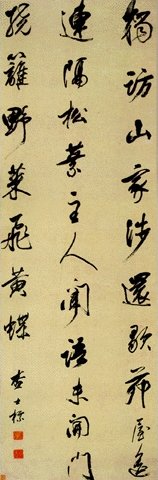 獨訪山家歩還歇茆屋邊
連隔松葉主人聞語未開門
繞籬野菜飛黃蝶
查士標